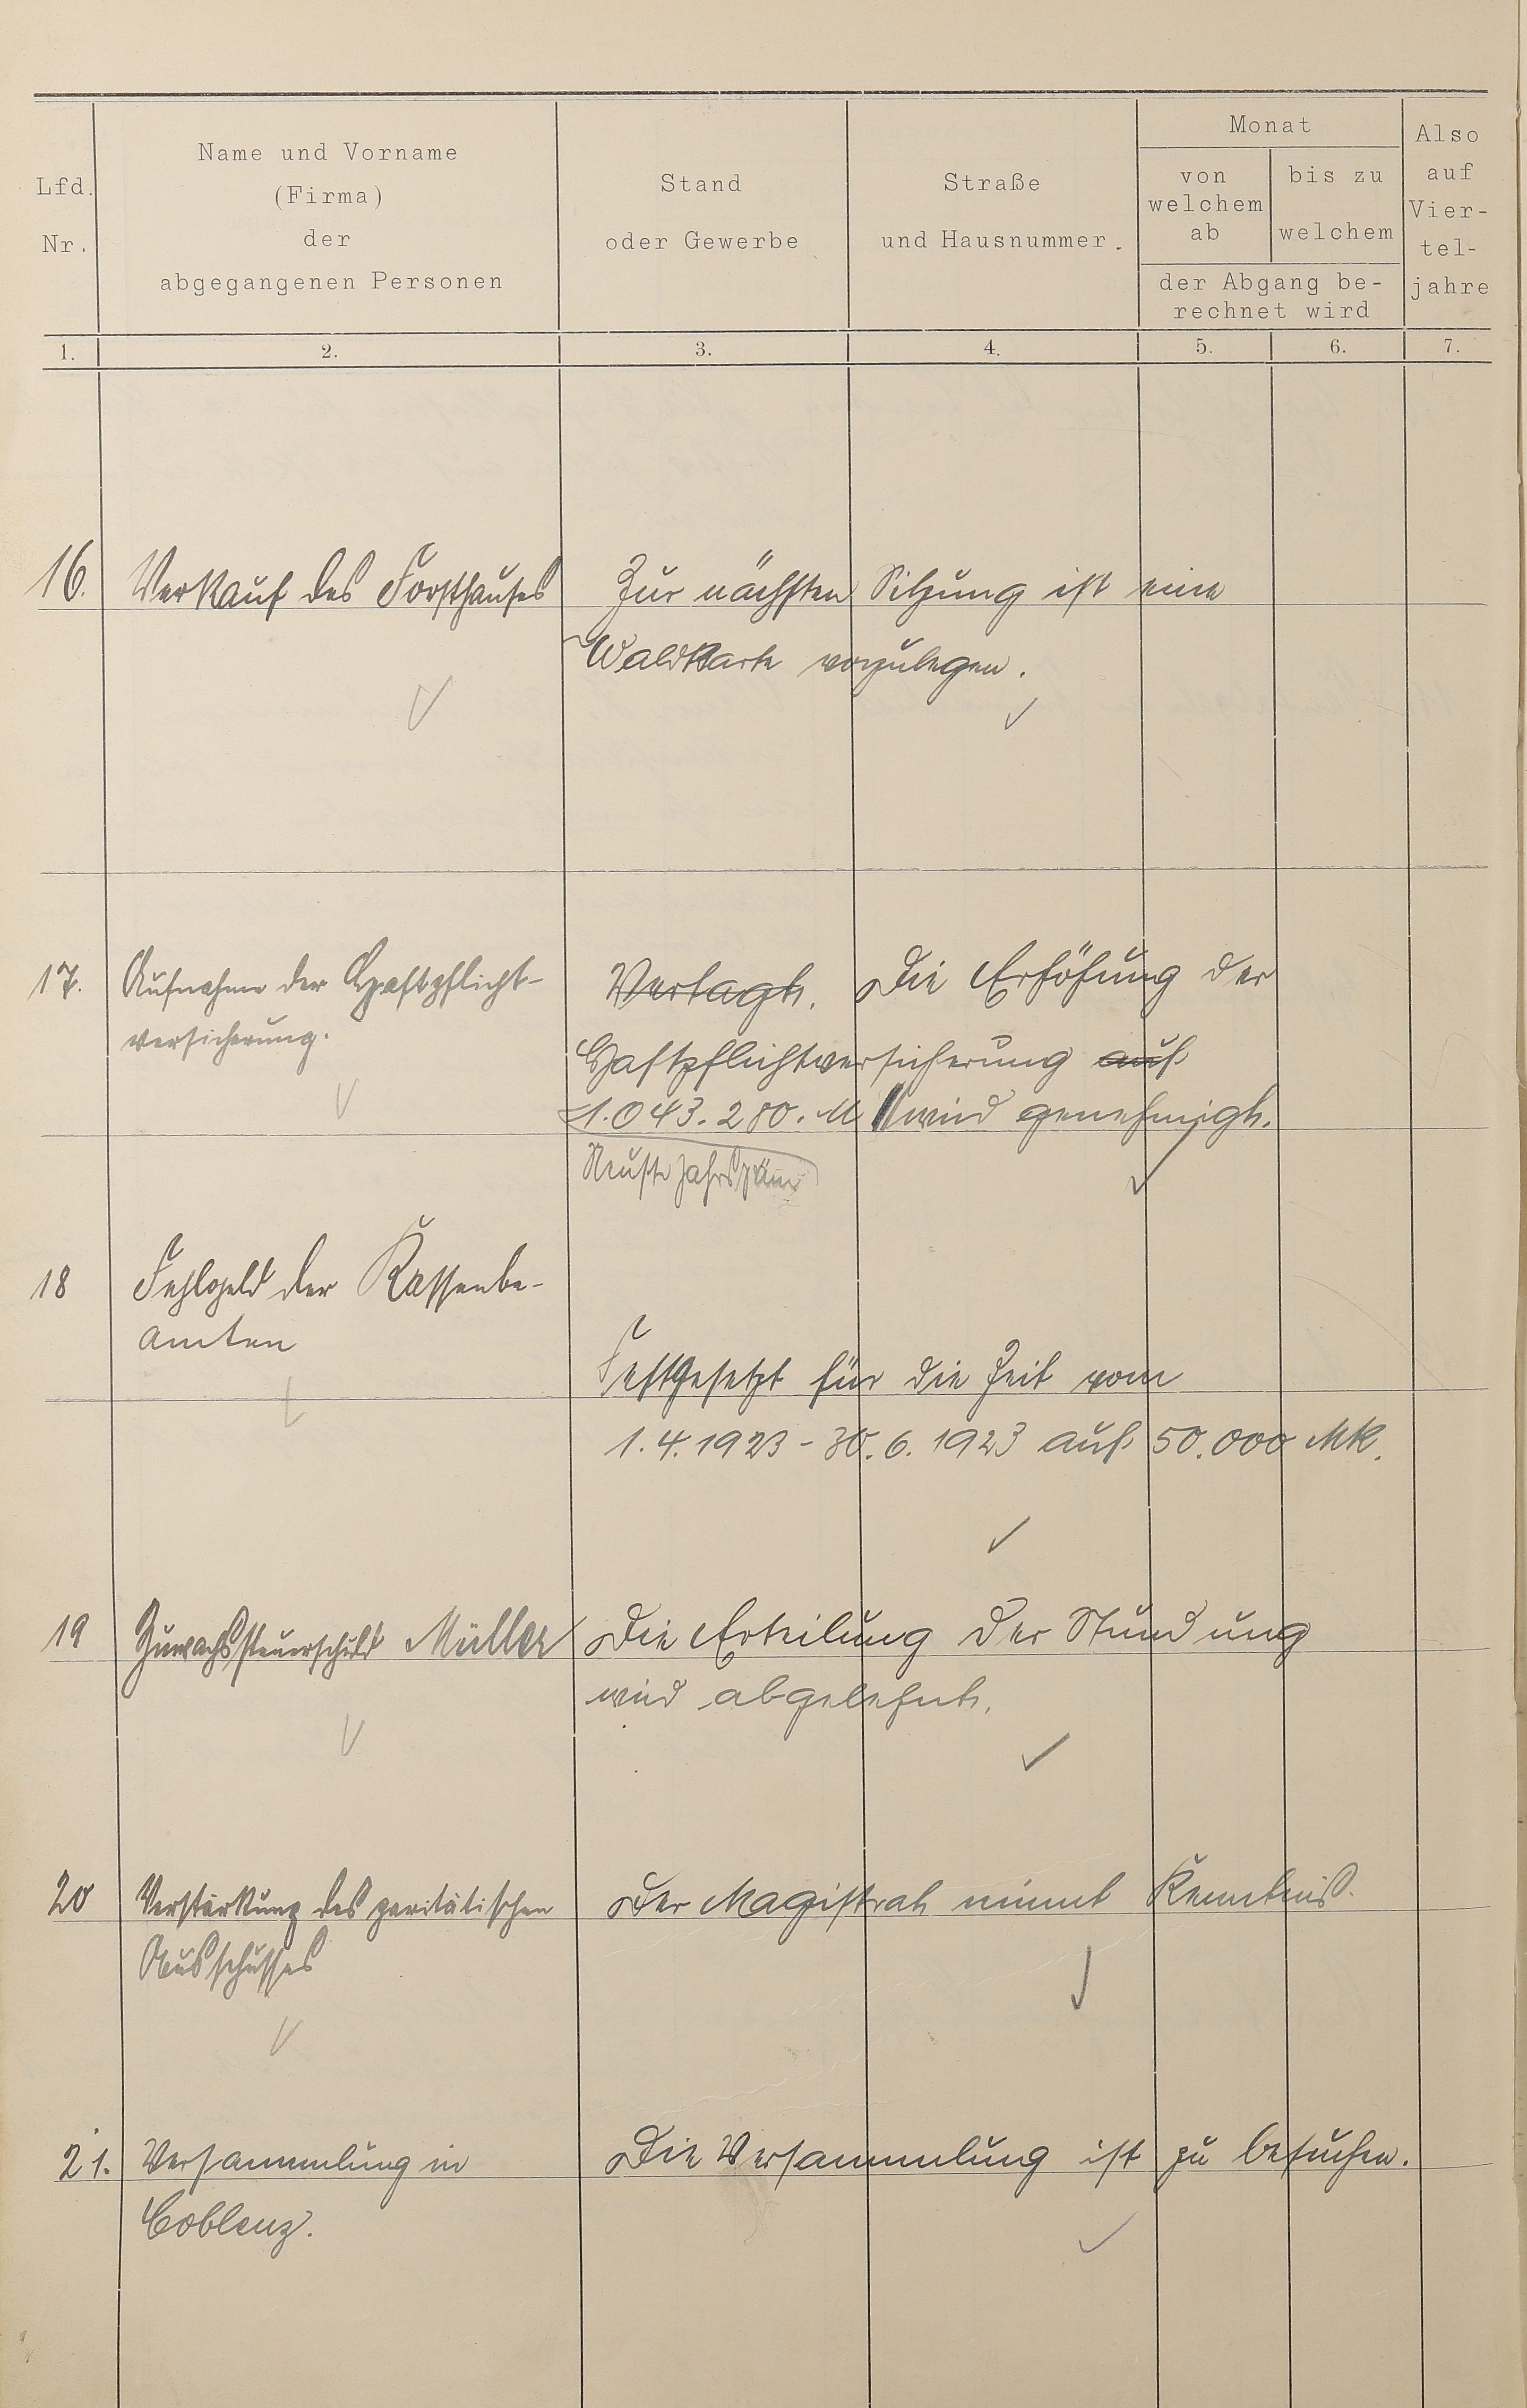 Lfd.
Nr.
Name und Vorname
(Firma)
der
abgegangenen Personen
Stand
oder Gewerbe
Straße
und Hausnummer.
Monat
von
welchem
ab
bis zu
welchem
der Abgang be-
rechnet wird
Also
auf
Vier-
tel-
jahre
1. 2. 3. 4. 5. 6. 7.
16. Verkauf des Forsthauses
Zur nächsten Sitzung ist eine
Waldkarte vorzulegen.
17. Aufnahme der Haftpflicht-
versicherung.
Vertagt. Die Erhöhung der
Haftpflichtversicherung auf
1.043.280. M wird genehmigt.
18 Fehlgeld der Kassenbe-
amten
Festgesetzt für die Zeit vom
1.4.1923 - 30.6.1923 auf 50.000 Mk.
19 Zuwachssteuerschuld Müller
Die Erteilung der Stundung
wird abgelehnt.
20 Verstärkung des paritätischen
Ausschusses
Der Magistrat nimmt Kenntniß.
21. Versammlung in
Coblenz.
Die Versammlung ist zu besuchen.